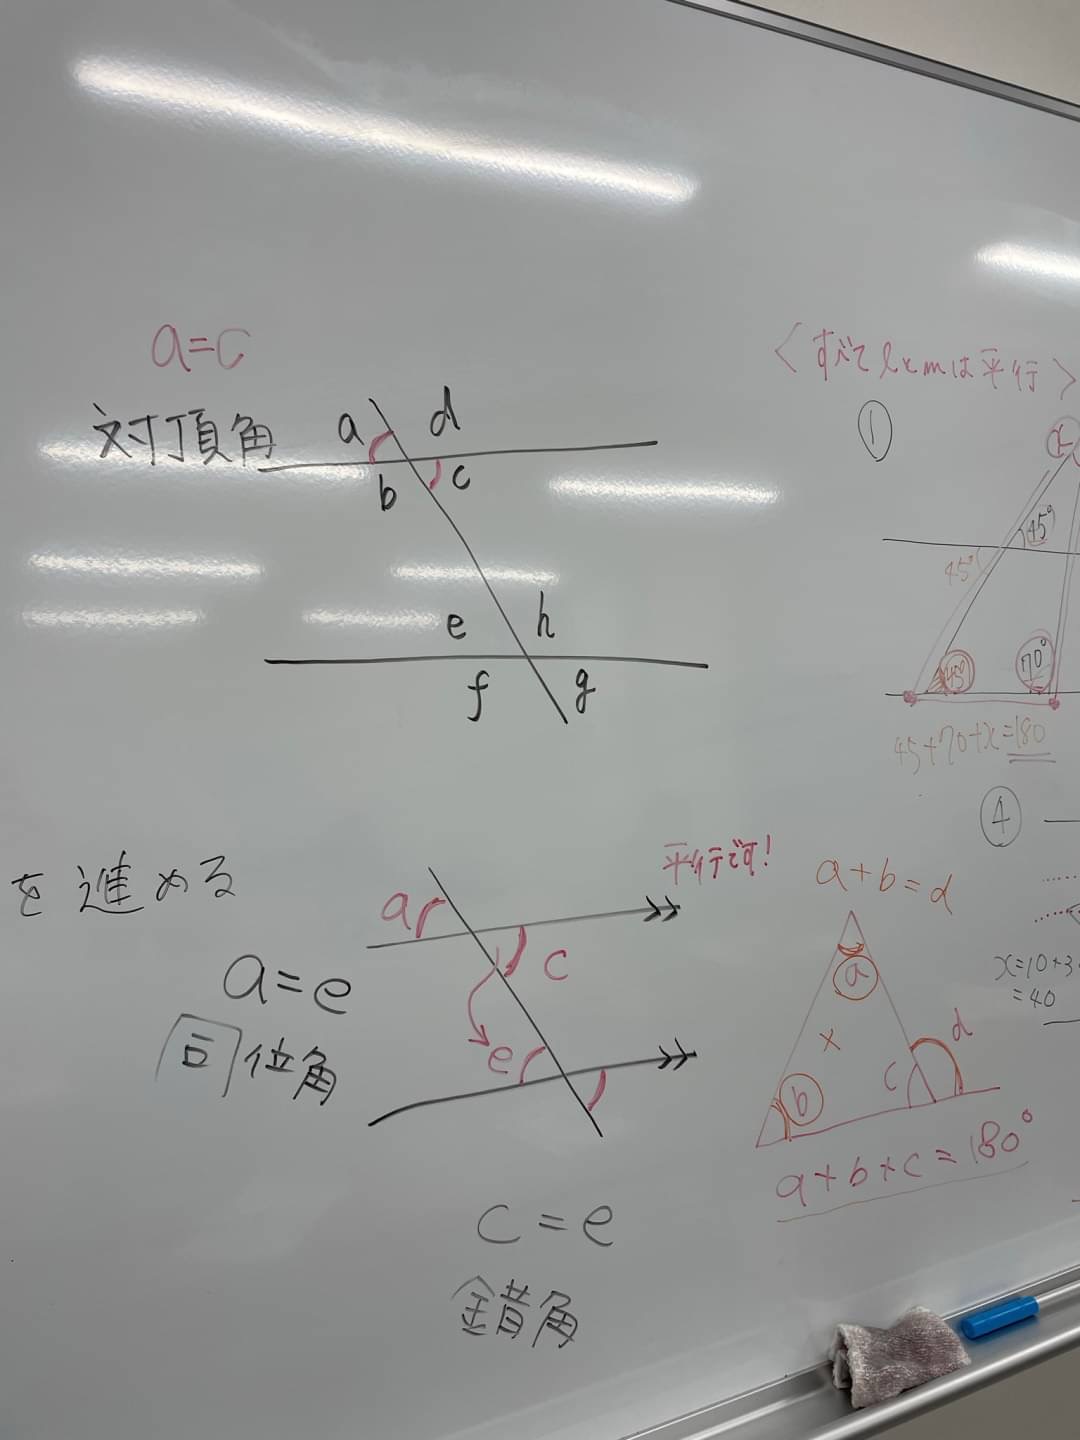 a=c
対頂角
a
d
b
c
e
h
f
g
を進める
a=e
同位角
a
c
e
平行です!
c=e
錯角
<すべてlとmは平行>
①
x
45°
45°
45°
70°
45+70+x=180
④
x=10+3
=40
a+b=d
a
b
c
d
x
a+b+c=180°